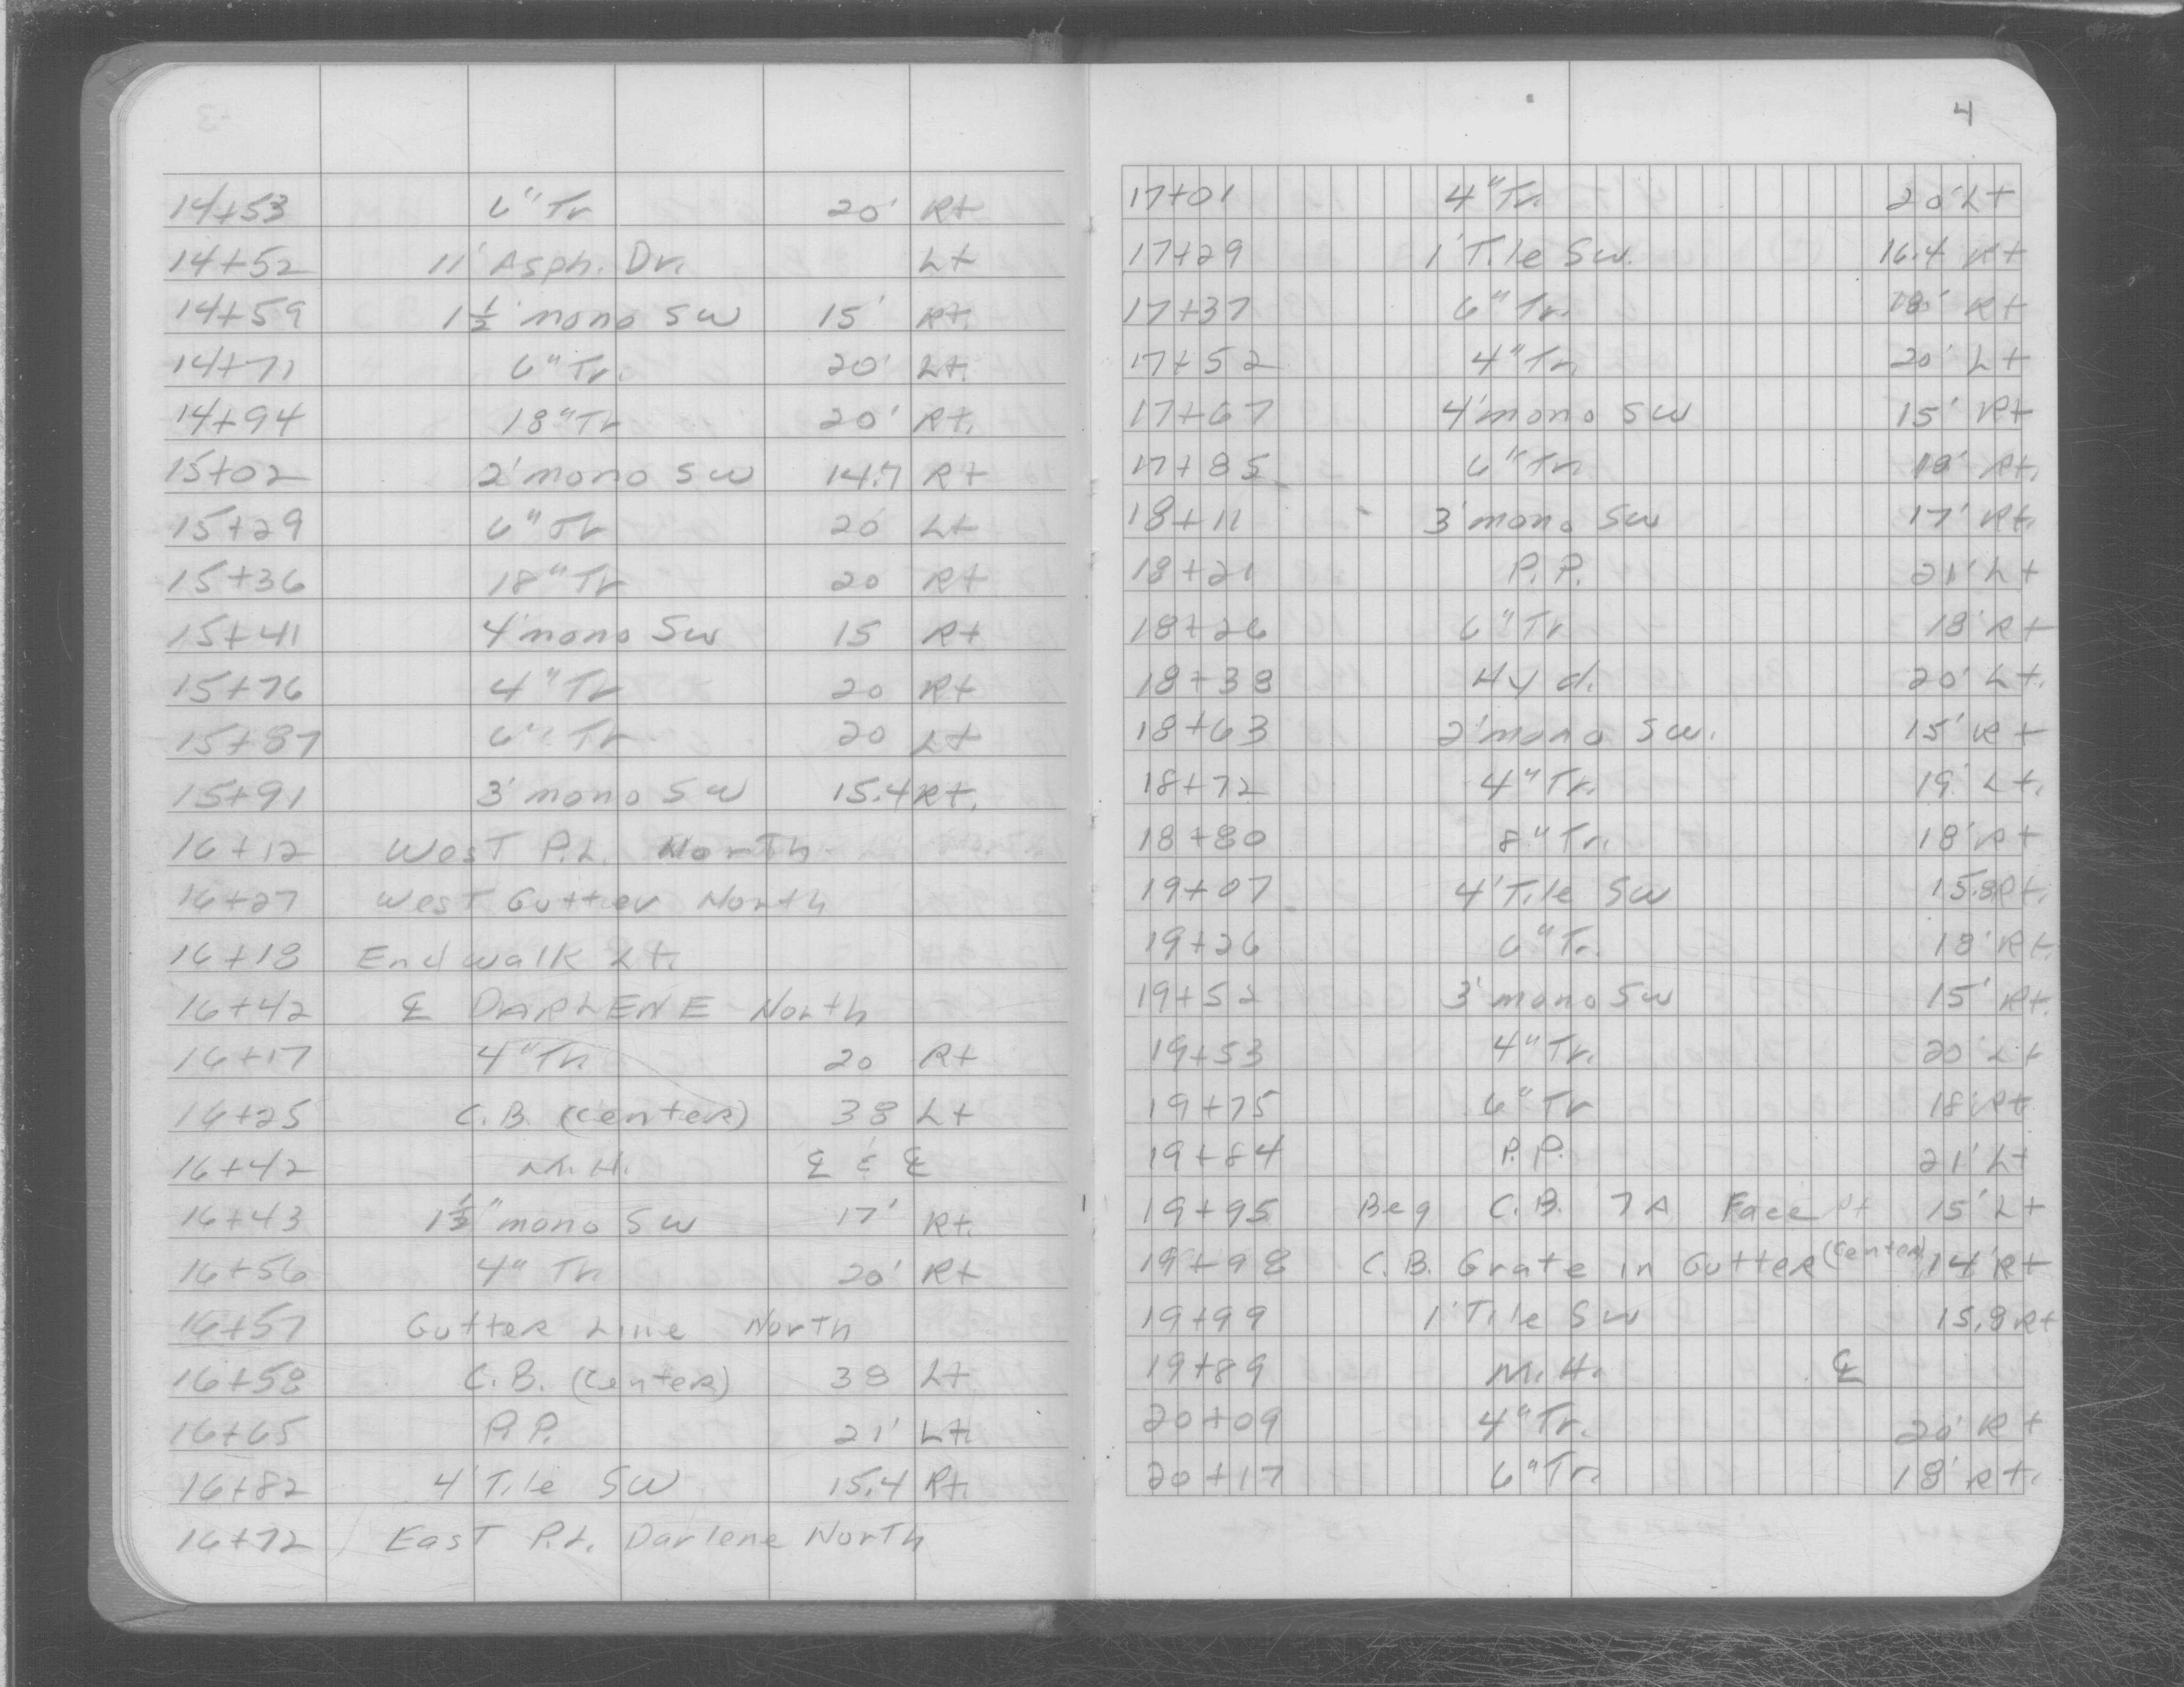 14+53 6" Tr 20' Rt
14+52 11' Asph. Dr. Lt
14+59 1½' mono SW 15' Rt.
14+71 6" Tr. 20' Lt.
14+94 18" Tr 20' Rt.
15+02 2' mono SW 14.7 Rt
15+29 6" Tr 20 Lt
15+36 18" Tr 20 Rt
15+41 4' mono SW 15 Rt
15+76 4" Tr 20 Rt
15+87 6" Tr 20 Lt
15+91 3' mono SW 15.4 Rt.
16+12 West P.L. North
16+27 West Gutter North
16+18 End walk Lt.
16+42 ℄ DARLENE North
16+17 4" Tr. 20 Rt
16+25 C.B. (center) 38 Lt
16+42 M.H. ℄ & ℄
16+43 1½" mono SW 17' Rt.
16+56 4" Tr. 20' Rt
16+57 Gutter Line North
16+58 C.B. (Center) 38 Lt
16+65 P.P. 21' Lt.
16+82 4' Tile SW 15.4 Rt.
16+72 East P.L. Darlene North
4
17+01 4" Tr. 20' Lt
17+29 1' Tile SW. 16.4 Rt
17+37 6" Tr. 18' Rt
17+52 4" Tr. 20' Lt
17+67 4' mono SW 15' Rt
17+85 6" Tr. 18' Rt.
18+11 3' mono SW 17' Rt.
18+21 P.P. 21' Lt
18+26 6" Tr 18' Rt
18+38 Hyd. 20' Lt.
18+63 2' mono SW. 15' Rt
18+72 4" Tr. 19' Lt.
18+80 8" Tr. 18' Rt
19+07 4' Tile SW 15.8 Rt.
19+26 6" Tr. 18' Rt.
19+52 3' mono SW 15' Rt.
19+53 4" Tr. 20' Lt
19+75 6" Tr 18' Rt
19+84 P.P. 21' Lt
19+95 Beg C.B. 7A Face 15' Lt
19+98 C.B. Grate in Gutter (center) 14' Rt
19+99 1' Tile SW 15.8 Rt
19+89 M.H. ℄
20+09 4" Tr. 20' Rt
20+17 6" Tr. 18' Rt.